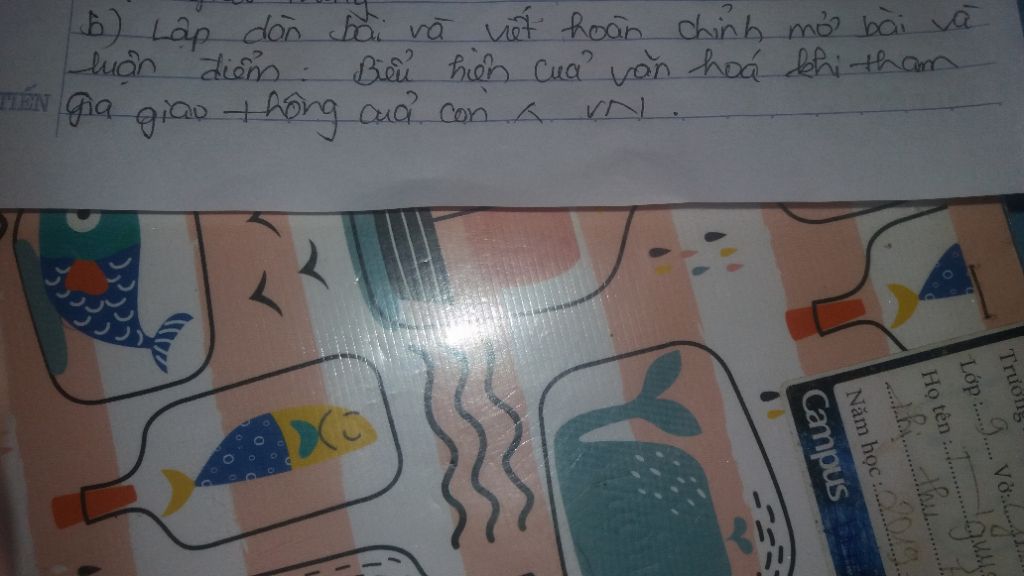 b) Lập dàn bài và viết hoàn chỉnh mở bài và
luận điểm: Biểu hiện của văn hoá khi tham
gia giao thông của con < VN.
TIẾN
Trường
Lớp: 9 Vở:
Họ tên:
Năm học
Campus